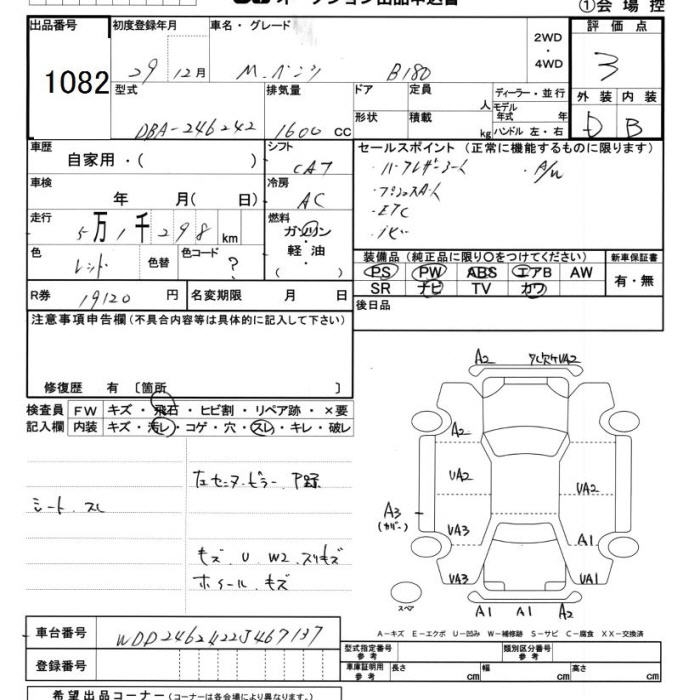 オークション出品申込書 ①会場控
出品番号 初度登録年月 車名・グレード 評価点
1082 29 12月 M.ベンツ B180 2WD・4WD 3
型式 排気量 ドア 定員 人 ディーラー・並行 外装 内装
DBA-246242 1600 cc 形状 積載 kg モデル年式 年 ハンドル 左・右 D B
車歴 シフト セールスポイント (正常に機能するものに限ります)
自家用・( ) CAT ・ハーフレザーシート ・A/W
車検 冷房 ・プッシュスタート
年 月( 日) AC ・ETC
走行 燃料 ・ナビ
5万1千298km ガソリン・軽油 ( )
色 色替 色コード 装備品 (純正品に限り○をつけてください) 新車保証書
レッド ? PS PW ABS エアB AW 有・無
SR ナビ TV カワ
R券 19120円 名変期限 月 日 後日品
注意事項申告欄 (不具合内容等は具体的に記入して下さい)
修復歴 有 [箇所 ]
検査員 FW キズ・飛石・ヒビ割・リペア跡・×要
記入欄 内装 キズ・汚レ・コゲ・穴・スレ・キレ・破レ
左センターピラー P跡
シート スレ
キズ U W2 スリキズ
ホイール キズ
A2 UA2
A2
UA2 UA2
A3
(カバー)
UA3 A1
UA3 UA1
スペア A1 A1 A2
A-キズ E-エクボ U-凹み W-補修跡 S-サビ C-腐食 XX-交換済
車台番号 WDD2462422J467137
型式指定番号 参考 類別区分番号 参考
登録番号 車庫証明用 参考 長さ cm 幅 cm 高さ cm
希望出品コーナー (コーナーは各会場により異なります。)